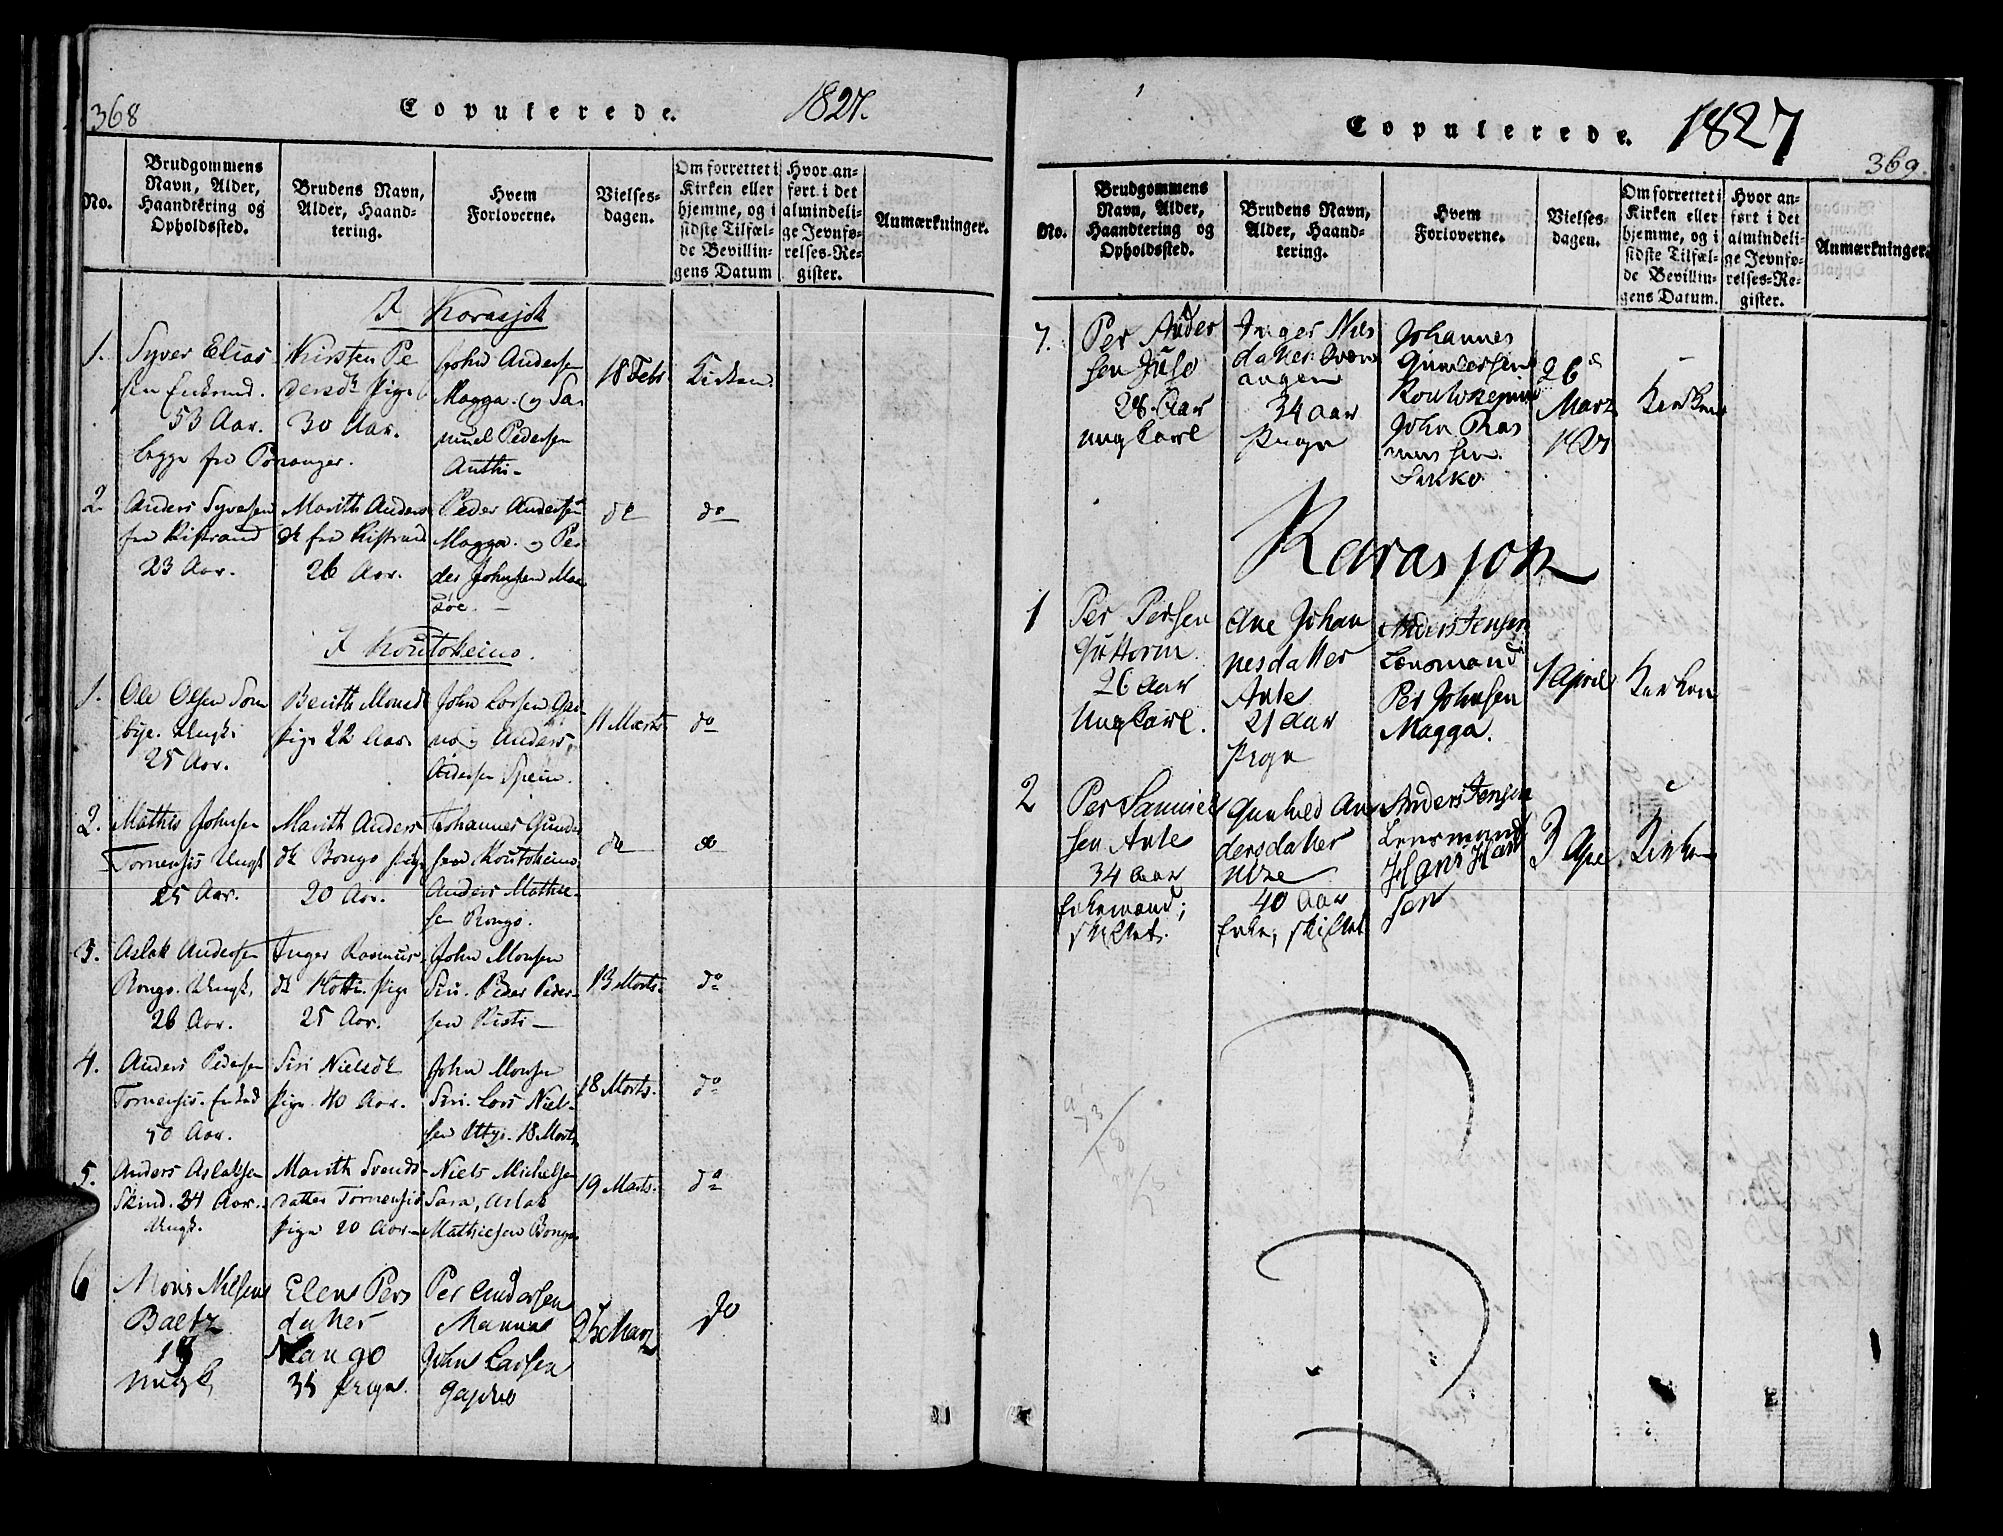 368
Copulerede.
1827.
No.
Brudgommens
Navn, Alder,
Haandtering og
Opholdssted.
Brudens Navn,
Alder, Haand-
tering.
Hvem
Forloverne.
Vielses-
dagen.
Om forrettet i
Kirken eller
hjemme, og i
sidste Tilfæl-
de Bevillin-
gens Datum
Hvor an-
ført i det
almindeli-
ge Jevnfø-
relses-Re-
gister.
Anmærkninger.
I Korasjok
1.
Syver Elias
sen Enkmd.
53 Aar.
Legge fra Poranger.
Kirsten Pe
dersdt Pige
30 Aar.
John Andersen
Magga. og Sa-
muel Pedersen
Anthi-
18 Febr.
Kirken.
2.
Anders Syversen
fra Kistrand
23 Aar.
Marith Anders
dt fra Kistrand
26 Aar.
Peder Andersen
Magga. og Pe-
der Johnsen Maa
søe. -
do
do
I Koutokeino.
1.
Ole Olsen Som
bye. Ungk.
25 Aar.
Berith Monsdt
Pige 22 Aar
John Larsen Gav
no og Anders
Andersen Spein.
11 Marts.
do
2.
Mathis Johnsen
Tornensis Ungk
25 Aar.
Marith Anders
dt Bongo Pige
20 Aar.
Johannes Gunder
sen Koutokeino
Anders Mathie
sen Bongo.
do
do
3.
Aslak Andersen
Bongo. Ungk.
26 Aar.
Inger Rasmus-
dt Kotti. Pige
25 Aar.
John Monsen
Siri. Peder Peder-
sen Risti-
13 Marts.
do
4.
Anders Pedersen
Tornensis. Enkmd
50 Aar.
Siri Nielsdt
Pige. 40 Aar.
John Monsen
Siri. Lars Niel-
sen Uttzi. 18 Marts
18 Marts.
do
5.
Anders Aslaksen
Skind. 34 Aar.
Ungk.
Marith Svends-
datter Tornensis
Pige 20 Aar
Niels Michelsen
Sara, Aslak
Mathiesen Bongo
19 Marts.
do
6
Mons Nilsen
Baltz
18
ungk
Elen Pers
datter
Nango
35 Pige
Per Andersen
Mannas
John Larsen
Gavno
25 Marz
do
Copulerede.
1827
369.
No.
Brudgommens
Navn, Alder,
Haandtering og
Opholdssted.
Brudens Navn,
Alder, Haand-
tering.
Hvem
Forloverne.
Vielses-
dagen.
Om forrettet i
Kirken eller
hjemme, og i
sidste Tilfæl-
de Bevillin-
gens Datum.
Hvor an-
ført i det
almindeli-
ge Jevnfø-
relses-Re-
gister.
Anmærkninger.
7.
Per Ander
sen Juso
28 Aar
ungkarl
Inger Nils
datter Qvæn
angen
34 aar
Pige
Johannes
Gundersen
Koutokeino
John Ras
mussen
Sikko
26
Marz
1827
Kirken
Karasjok
1
Per Persen
Guttorm
26 Aar
Ungkarl.
Ane Johan
nesdatter
Ante
21 aar
Pige
Anders Jensen
Lensmand
Per Johnsen
Magga.
1 April
Kirken
2
Per Samuel
sen Ante
34 aar
Enkemand;
skiftet.
Gunhild An
dersdatter
40 Aar
Enke, skiftet
Anders Jensen
Lensmand
Hans Han
sen
3 Apr
Kirken